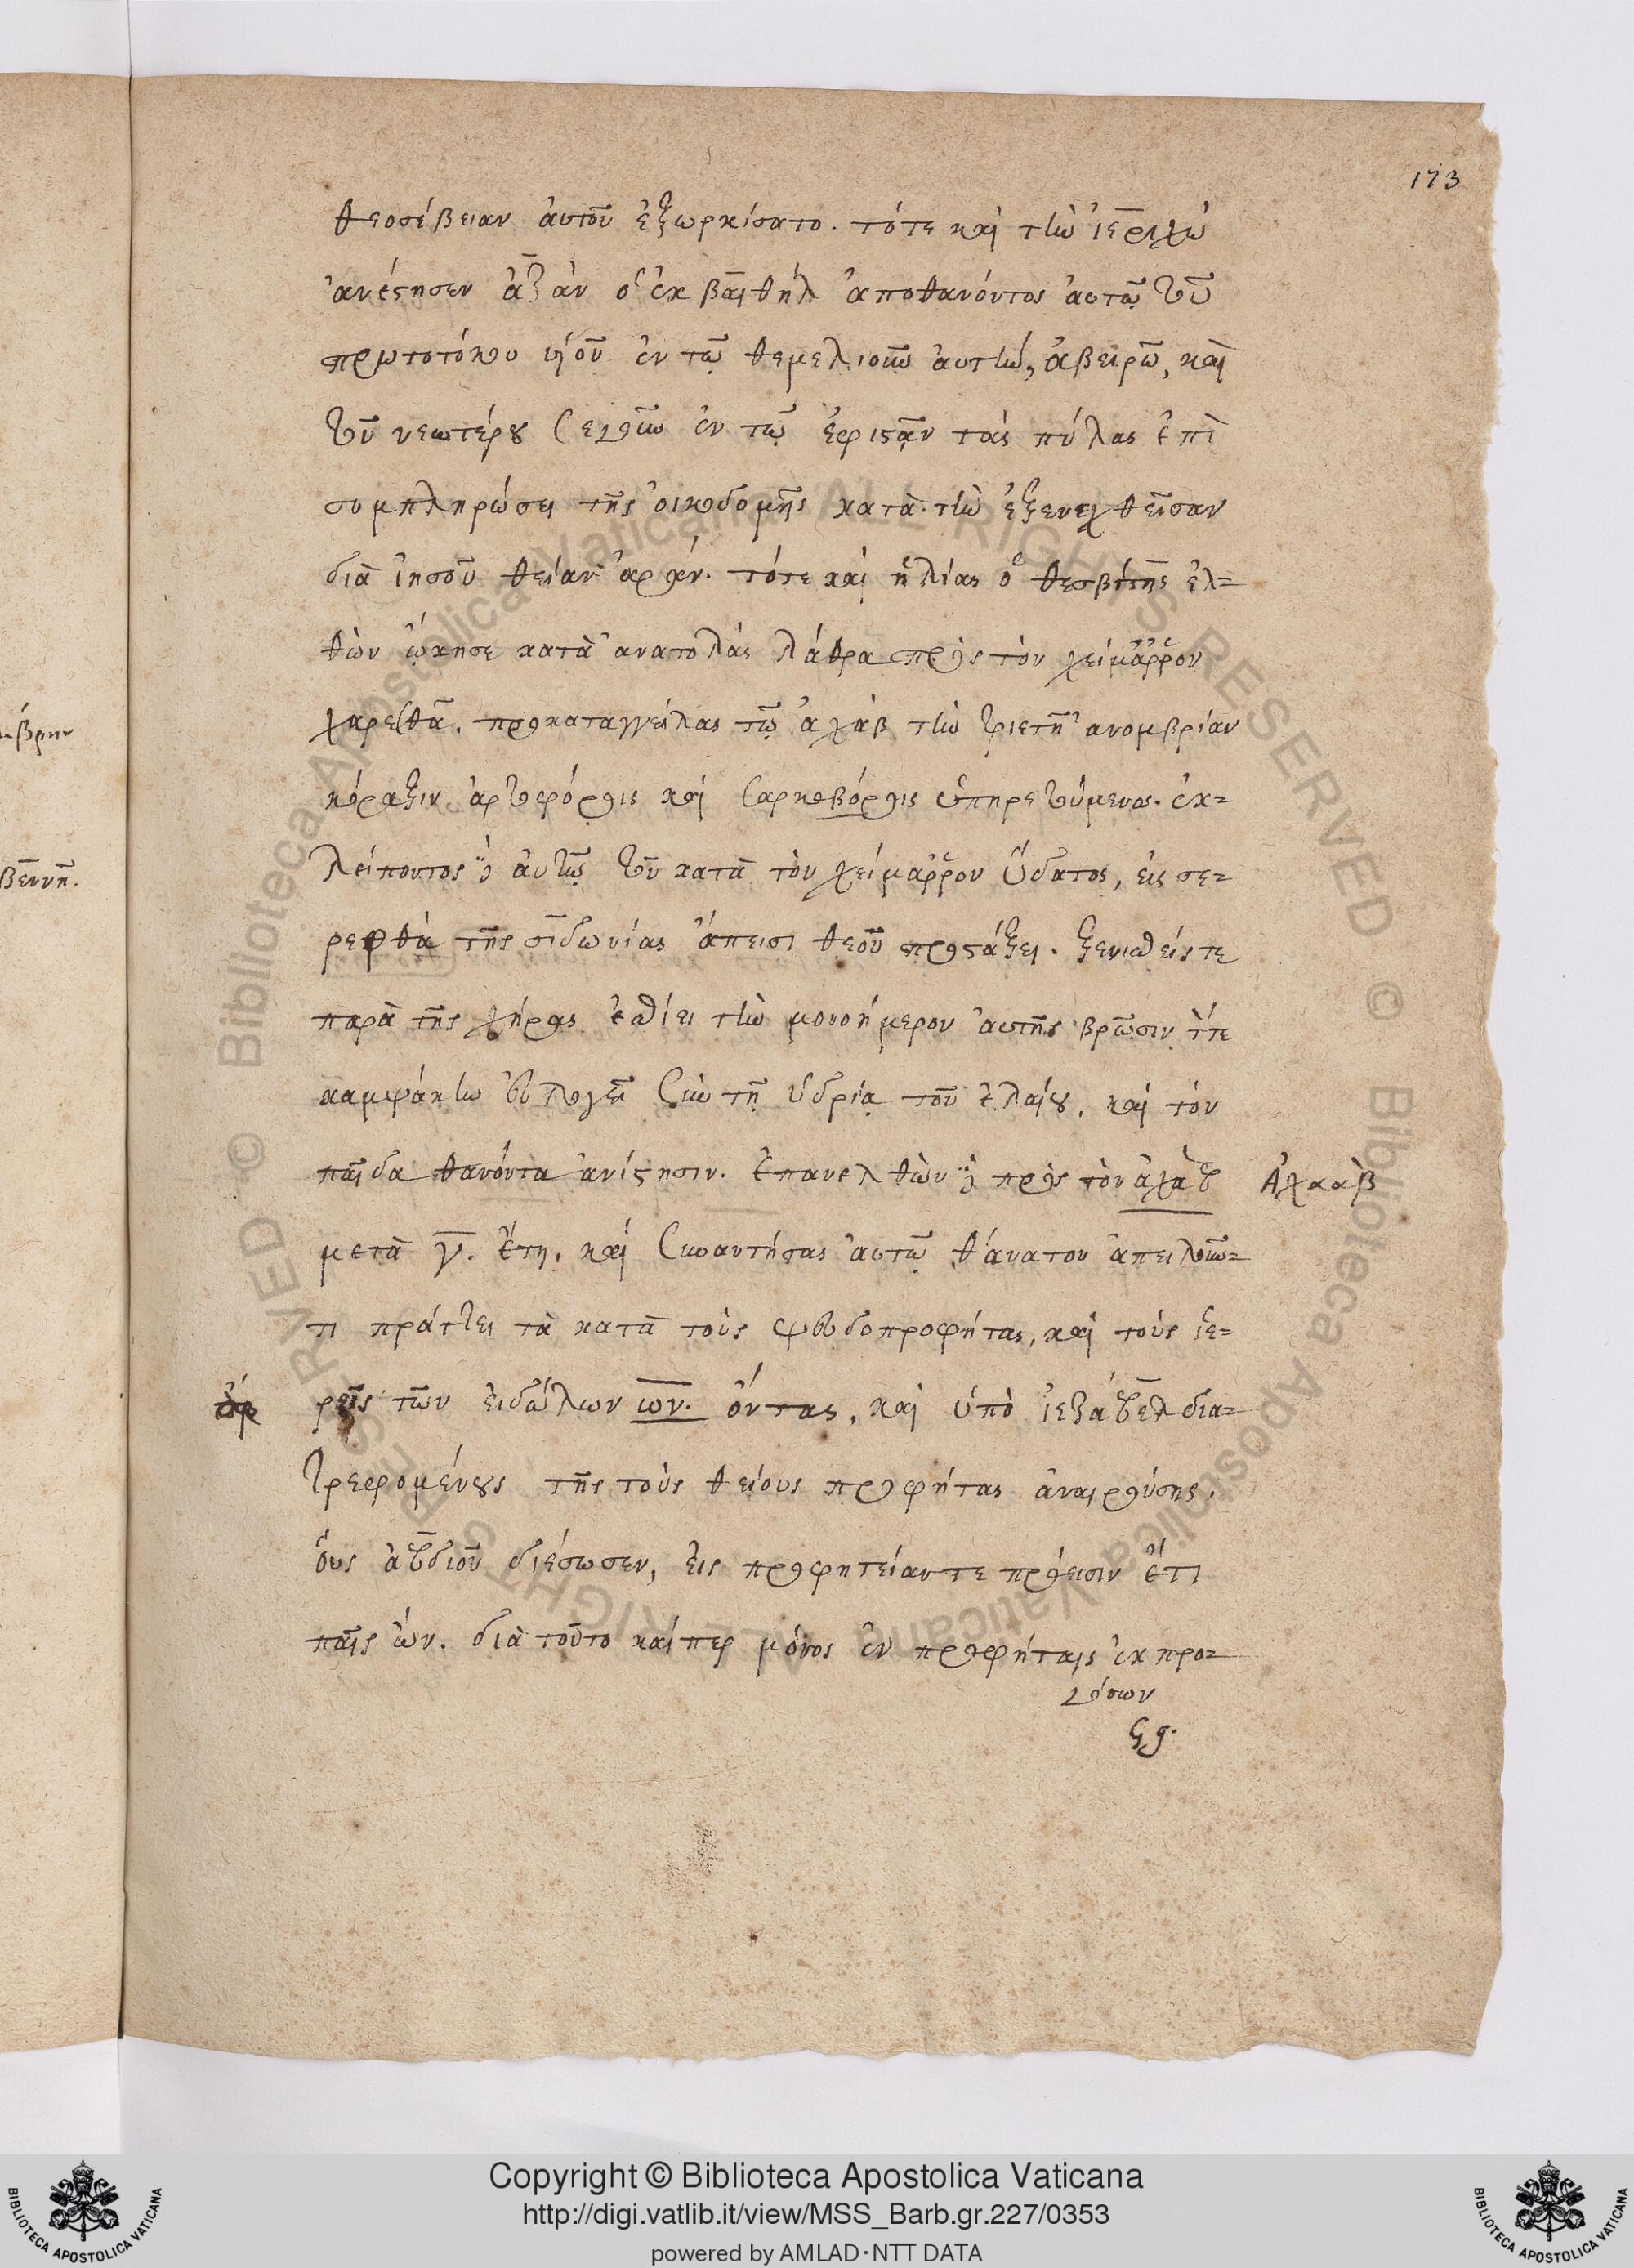 173
θεοσέβειαν ἀυτοῦ ἐξωρκίσατο. τότε καὶ τὴν ἱεριχὼ
ἀνέστησεν ἀζὰν ὁ ἐκ βαιθὴλ ἀποθανόντος ἀυτῷ τοῦ
πρωτοτόκου υἱοῦ ἐν τῷ θεμελιοῦν ἀυτήν, ἀβειρῶ, καὶ
τοῦ νεωτέρου σεγοῦν ἐν τῷ ἐφιστᾷν τὰς πύλας ἐπὶ
συμπληρώσει τῆς ὀικοδομῆς κατὰ τὴν ἐξενεχθεῖσαν
διὰ ἰησοῦ θείαν ἀράν. τότε καὶ ἡλίας ὁ θεσβίτης ἐλ=
θὼν ᾤκησε κατὰ ἀνατολὰς λάθρα πρὸς τὸν χείμαῤῥον
χαρεθᾶ. προκαταγγείλας τῷ ἀχάβ τὴν τριετῆ ἀνομβρίαν
κόραξιν ἀρτοφόροις καὶ σαρκοβόροις ὑπηρετούμενος. ἐκ=
λείποντος δὲ ἀυτῷ τοῦ κατὰ τὸν χείμαῤῥον ὕδατος, εἰς σε=
ρεφθὰ τῆς σιδωνίας ἄπεισι θεοῦ προστάξει. ξενισθείς τε
παρὰ τῆς χήρας ἐσθίει τὴν μονοήμερον ἀυτῆς βρῶσιν τήν τε
καμψάκην ἐυλογεῖ σὺν τῇ ὑδρίᾳ τοῦ ἐλαίου. καὶ τὸν
παῖδα θανόντα ἀνίστησιν. ἐπανελθὼν δὲ πρὸς τὸν ἀχὰβ
Ἀχαὰβ
μετὰ γ. ἔτη. καὶ συναντήσας ἀυτῷ θάνατον ἀπειλοῦν=
τι πράττει τὰ κατὰ τοὺς ψευδοπροφήτας, καὶ τοὺς ἱε=
ρεῖς τῶν εἰδώλων ων. ὄντας, καὶ ὑπὸ ἰεζάβελ δια=
τρεφομένους τῆς τοὺς θείους προφήτας ἀναιρούσης,
οὓς ἀβδιοῦ διέσωσεν, εἰς προφητείαν τε πρόεισιν ἔτι
παῖς ὤν. διὰ τοῦτο καίπερ μόνος ἐν προφήταις ἐκ προ=
γόνων
Copyright © Biblioteca Apostolica Vaticana
http://digi.vatlib.it/view/MSS_Barb.gr.227/0353
powered by AMLAD·NTT DATA
BIBLIOTECA APOSTOLICA VATICANA
BIBLIOTECA APOSTOLICA VATICANA